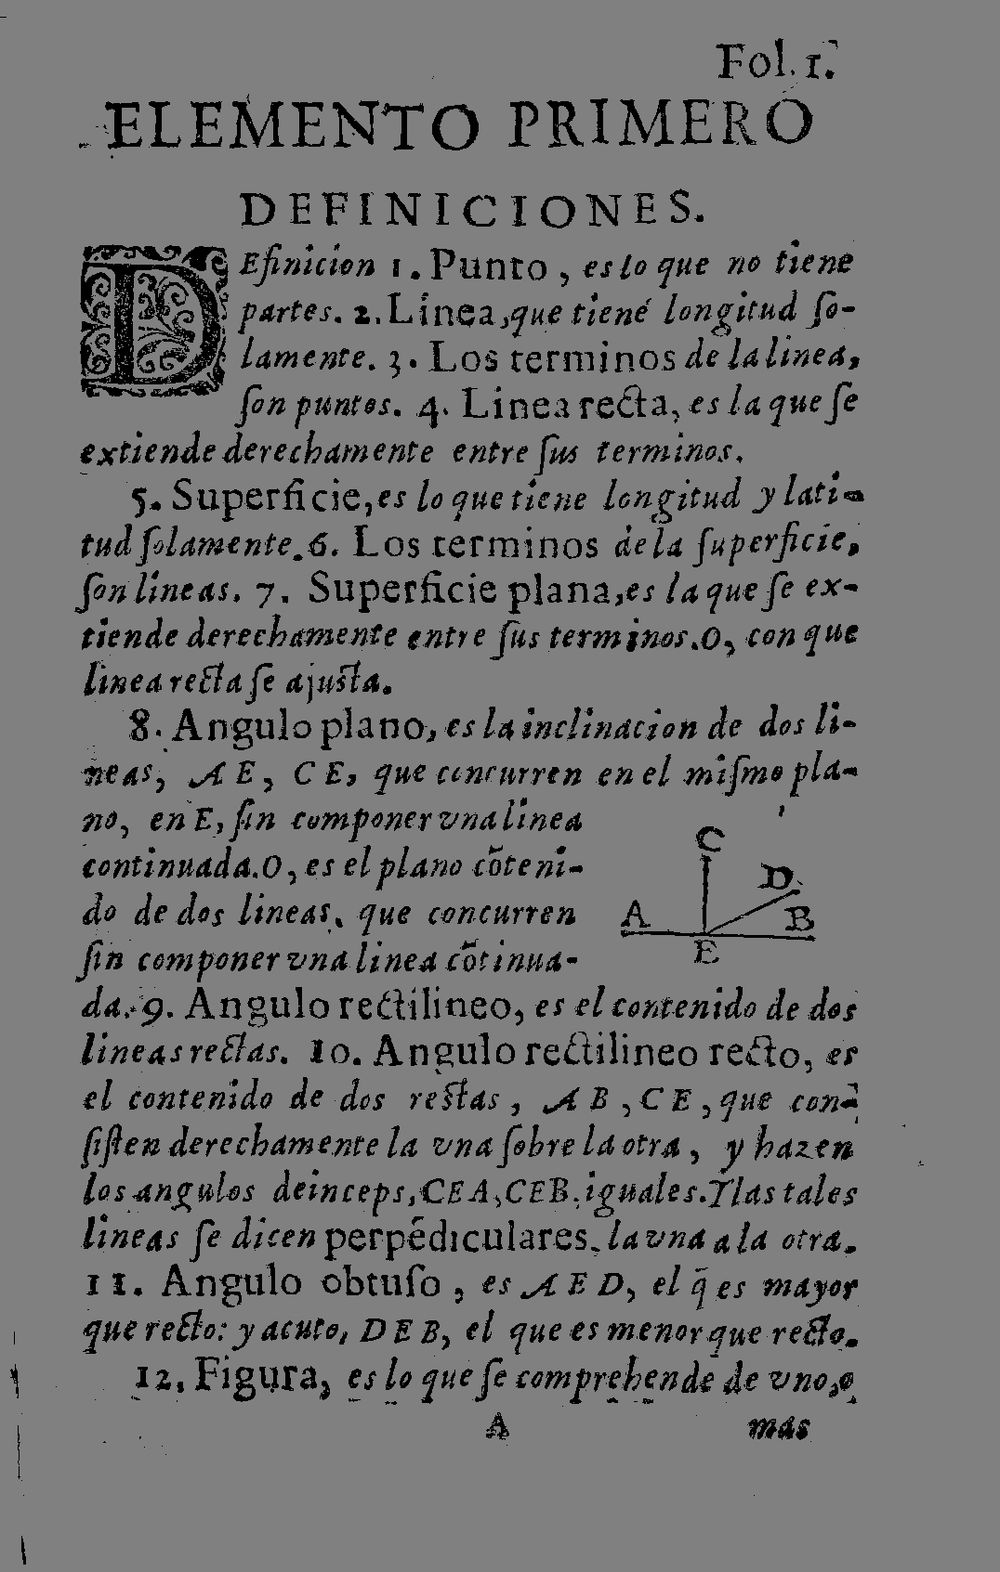 Fol. 1.
ELEMENTO PRIMERO
DEFINICIONES.
DEfinicion 1. Punto, es lo que no tiene
partes. 2. Linea, que tiené longitud ſo-
lamente. 3. Los terminos de la linea,
ſon puntos. 4. Linea recta, es la que ſe
extiende derechamente entre ſus terminos.
5. Superficie, es lo que tiene longitud y lati-
tud ſolamente. 6. Los terminos de la ſuperficie,
ſon lineas. 7. Superficie plana, es la que ſe ex-
tiende derechamente entre ſus terminos. O, con que
linea recta ſe ajusta.
8. Angulo plano, es la inclinacion de dos li-
neas, AE, CE, que concurren en el miſmo pla-
no, en E, ſin componer vna linea
continuada. O, es el plano cõteni-
do de dos lineas, que concurren
ſin componer vna linea cõtinua-
da. 9. Angulo rectilineo, es el contenido de dos
lineas rectas. 10. Angulo rectilineo recto, es
el contenido de dos restas, AB, CE, que con-
ſiſten derechamente la vna ſobre la otra, y hazen
los angulos deinceps, CEA, CEB. iguales. Y las tales
lineas ſe dicen perpẽdiculares, la vna a la otra.
11. Angulo obtuſo, es AED, el q̃ es mayor
que recto: y acuto, DEB, el que es menor que recto.
12. Figura, es lo que ſe comprehende de vno, o
A
más
C
D
A
B
E